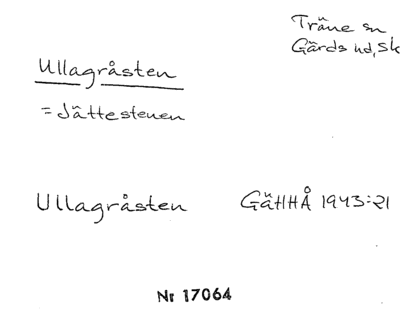 Träne sn
Gärds hd, Sk
Ullagråsten
= Jättestenen
Ullagråsten GäHHÅ 1943:21
Nr 17064